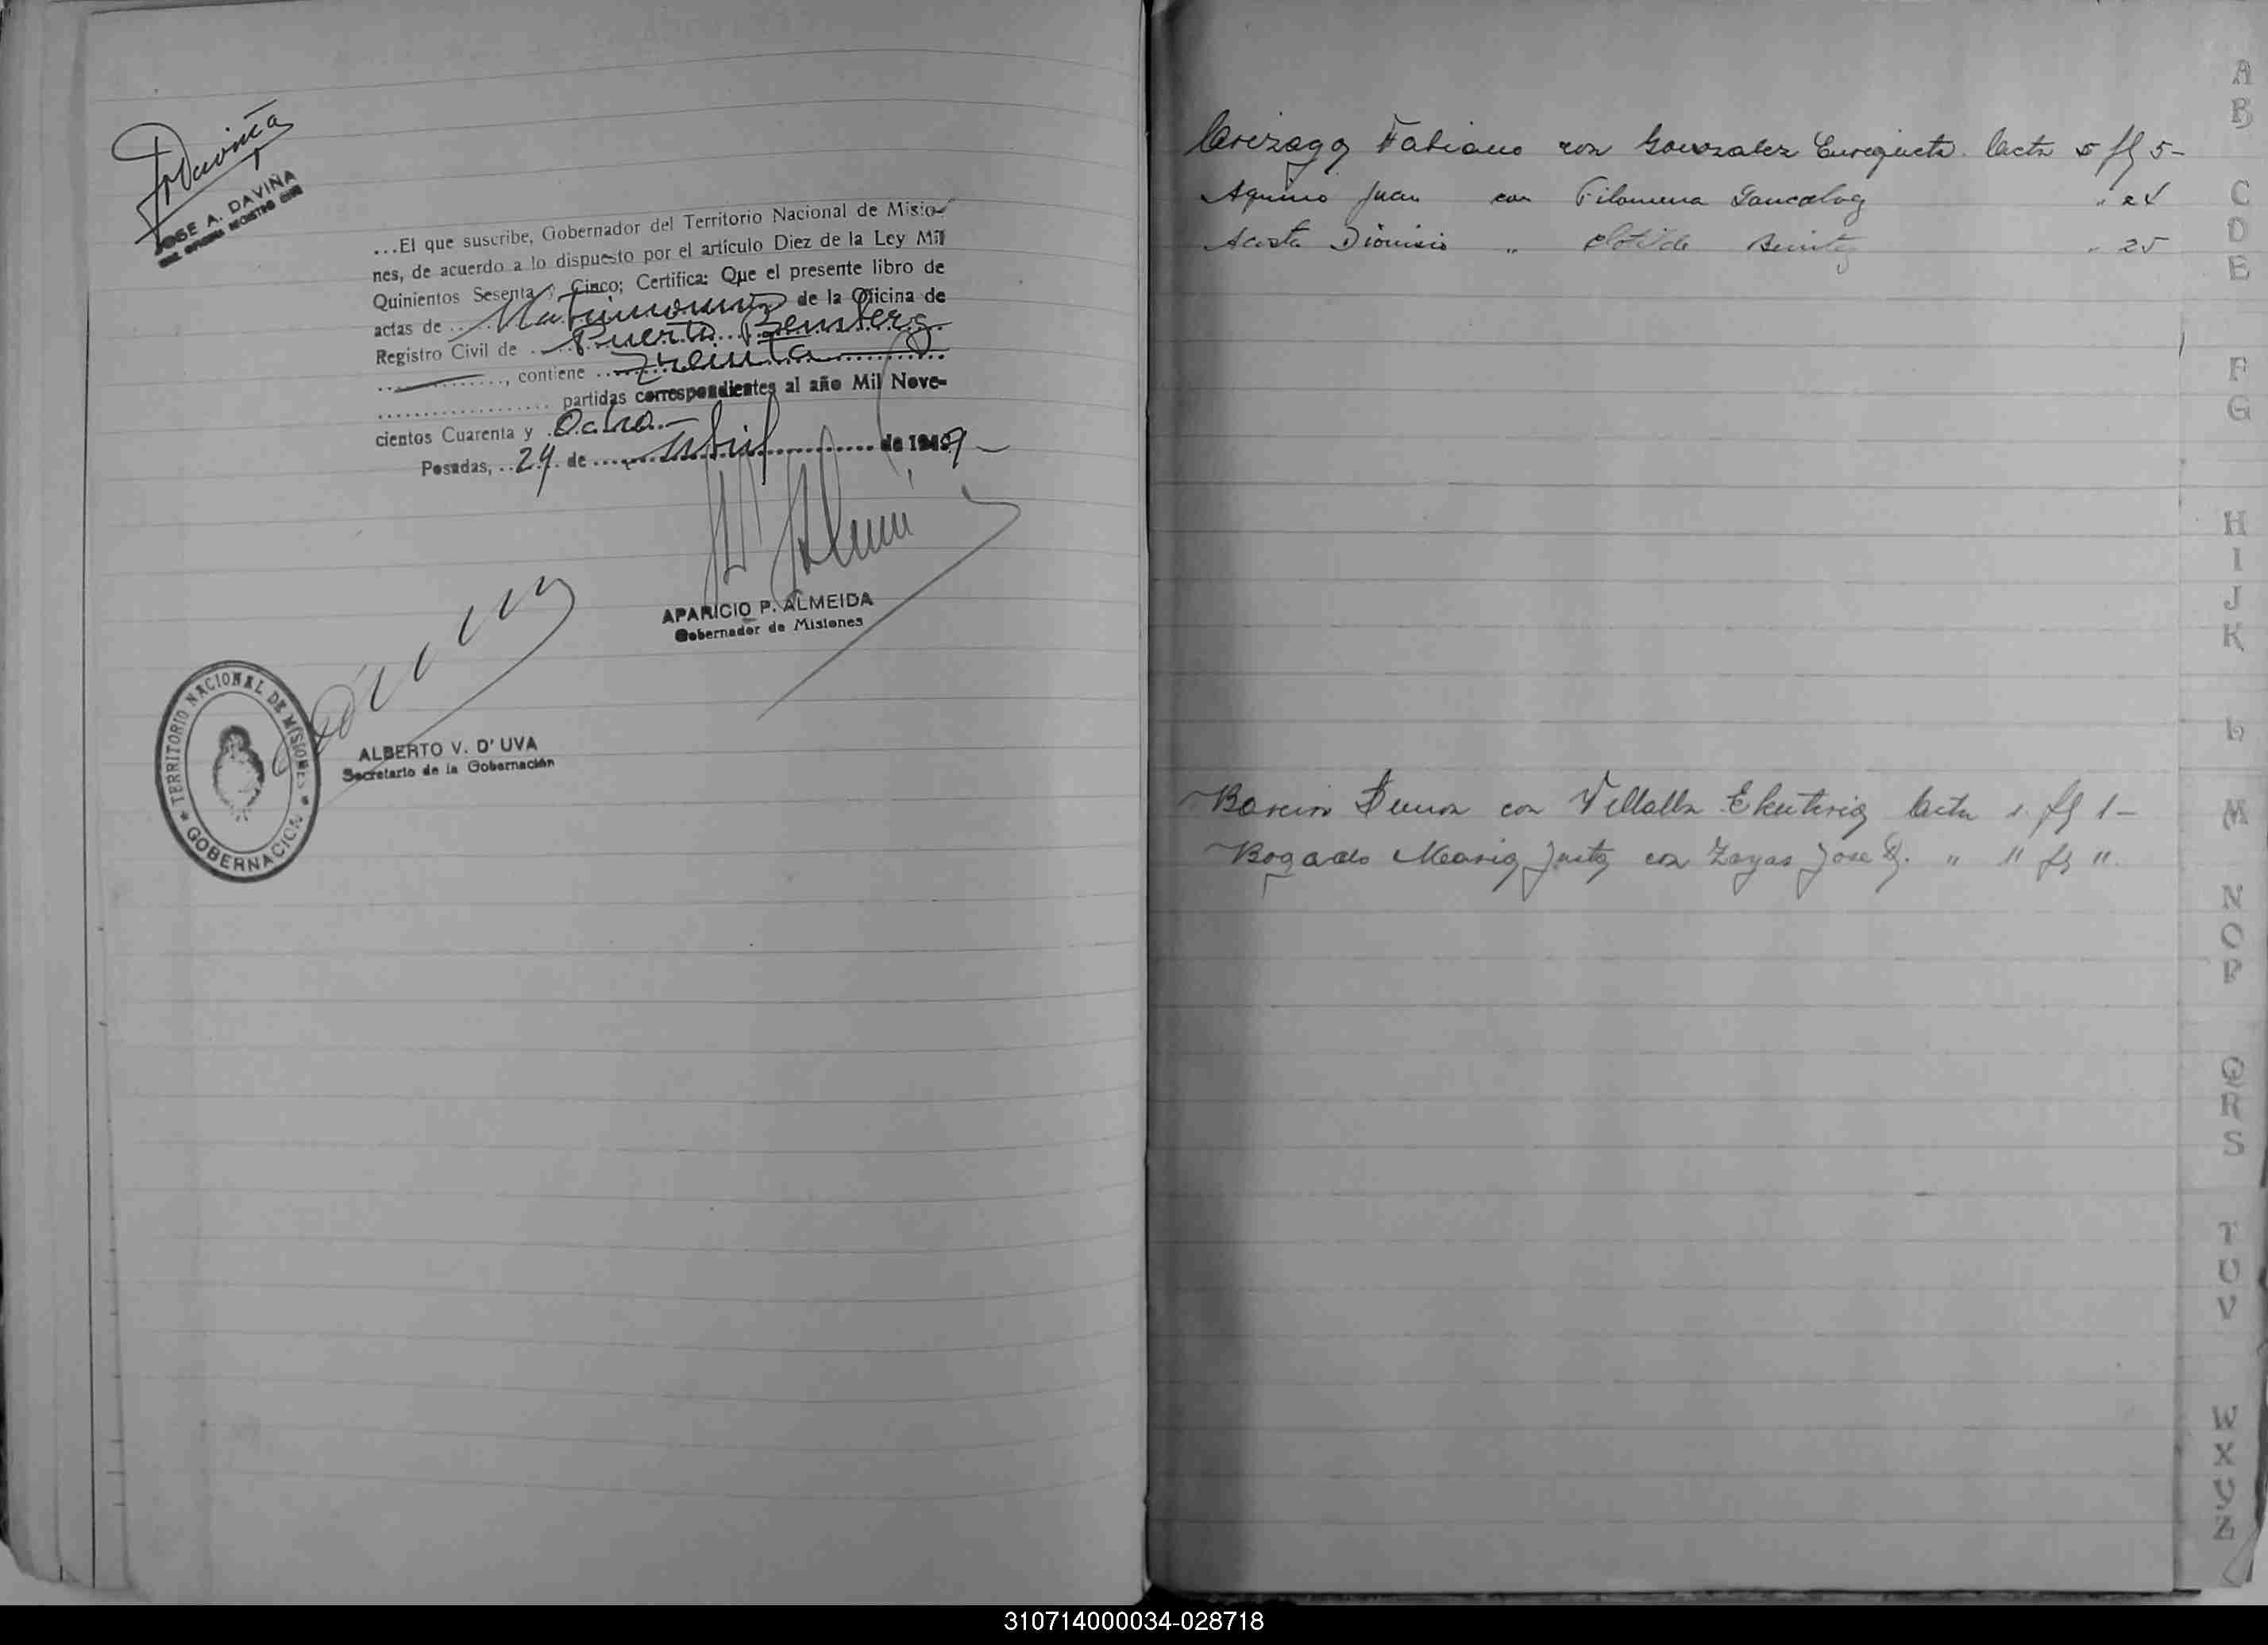 JOSE A. DAVIÑA
...El que suscribe, Gobernador del Territorio Nacional de Misio-
nes, de acuerdo a lo dispuesto por el artículo Diez de la Ley Mil
Quinientos Sesenta y Cinco; Certifica: Que el presente libro de
actas de Matrimonios de la Oficina de
Registro Civil de Puerto Bemberg
contiene Treinta
partidas correspondientes al año Mil Nove-
cientos Cuarenta y Ocho.-
Posadas, 29 de Abril de 1949
APARICIO P. ALMEIDA
Gobernador de Misiones
TERRITORIO NACIONAL DE MISIONES * GOBERNACION *
ALBERTO V. D' UVA
Secretario de la Gobernación
Fabiano con Gonzalez Enriqueta. Acta 5 fl 5-
Aquino Juan con Filomena " 24
Acosta Dionisio " Clotilde Benitez " 25
con Villalba Acta 1. fl 1-
Bogado Maria Justa con Zayas Jose " " fl "
A
B
C
D
E
F
G
H
I
J
K
L
M
N
O
P
Q
R
S
T
U
V
W
X
Y
Z
310714000034-028718